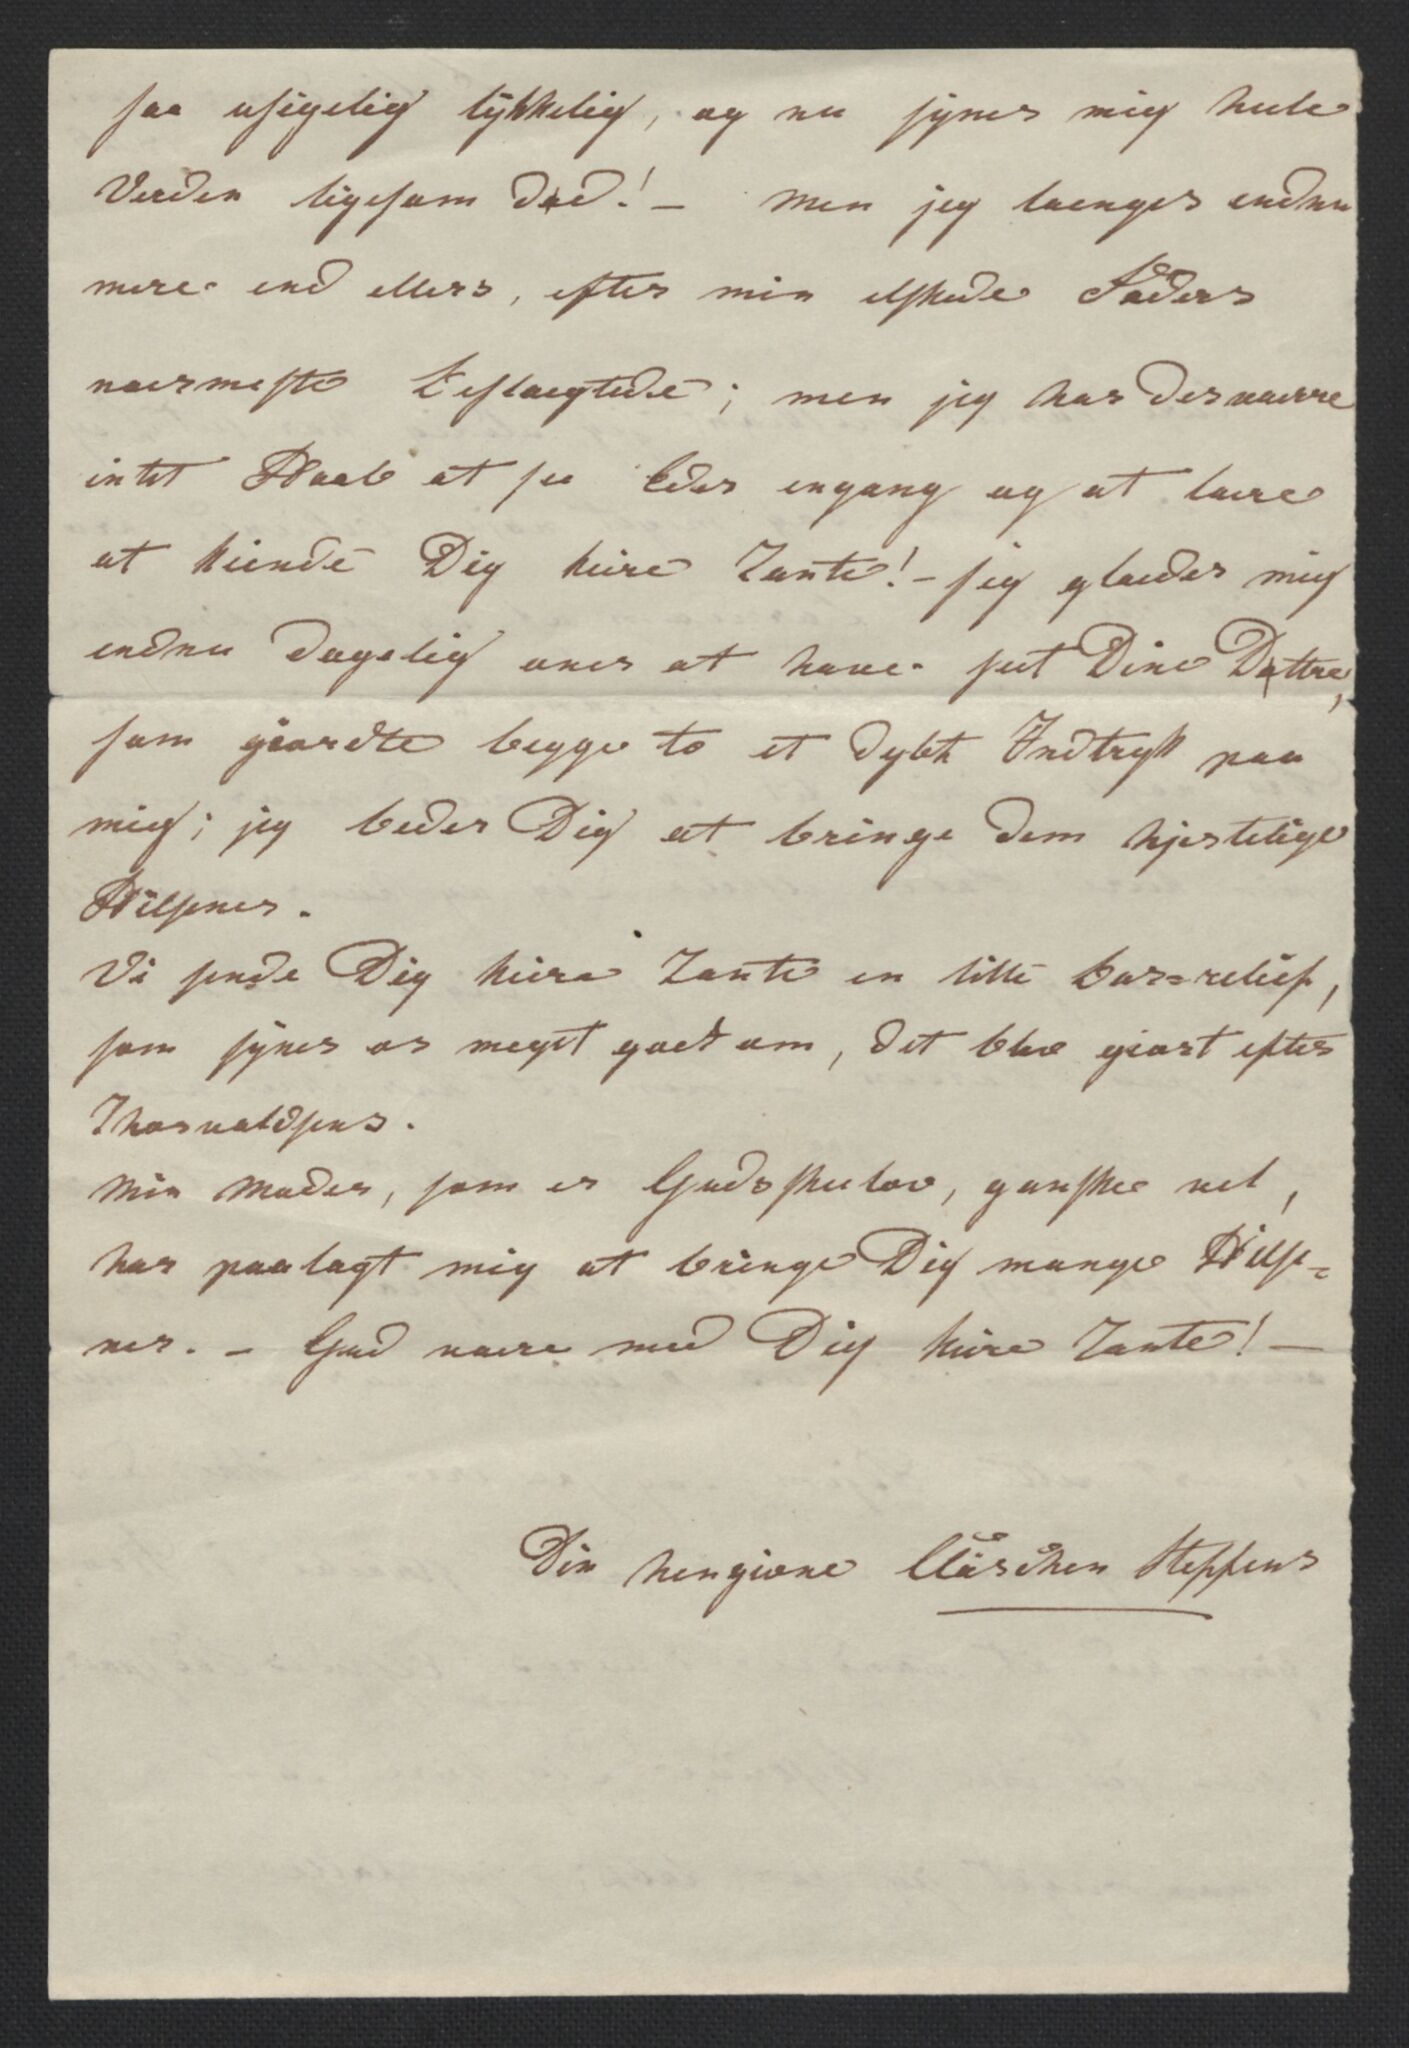 saa usigelig lykkelig, og nu synes mig heele
Verden ligesom død! – Men jeg laenges endnu
mere end ellers, efter min elskede Faders
naermeste Beslaegtede; men jeg har desvaerre
intet Haab at see Eder engang og at laere
at kiende Dig kiere Tante! – jeg glaeder mig
endnu dagelig over at have seet Dine Døttre,
som giordte begge to et dybt Indtryk paa
mig; jeg beder Dig at bringe dem hjertelige
Hilsener.
Vi sende Dig kiere Tante en lille bas=relief,
som synes os meget godt om, det blev giort efter
Thorvaldsens.
Min Moder, som er Gudskeelov, ganske vel,
har paalagt mig at bringe Dig mange Hilse=
ner. – Gud vaere med Dig kiere Tante! –
Din hengivne Clärchen Steffens